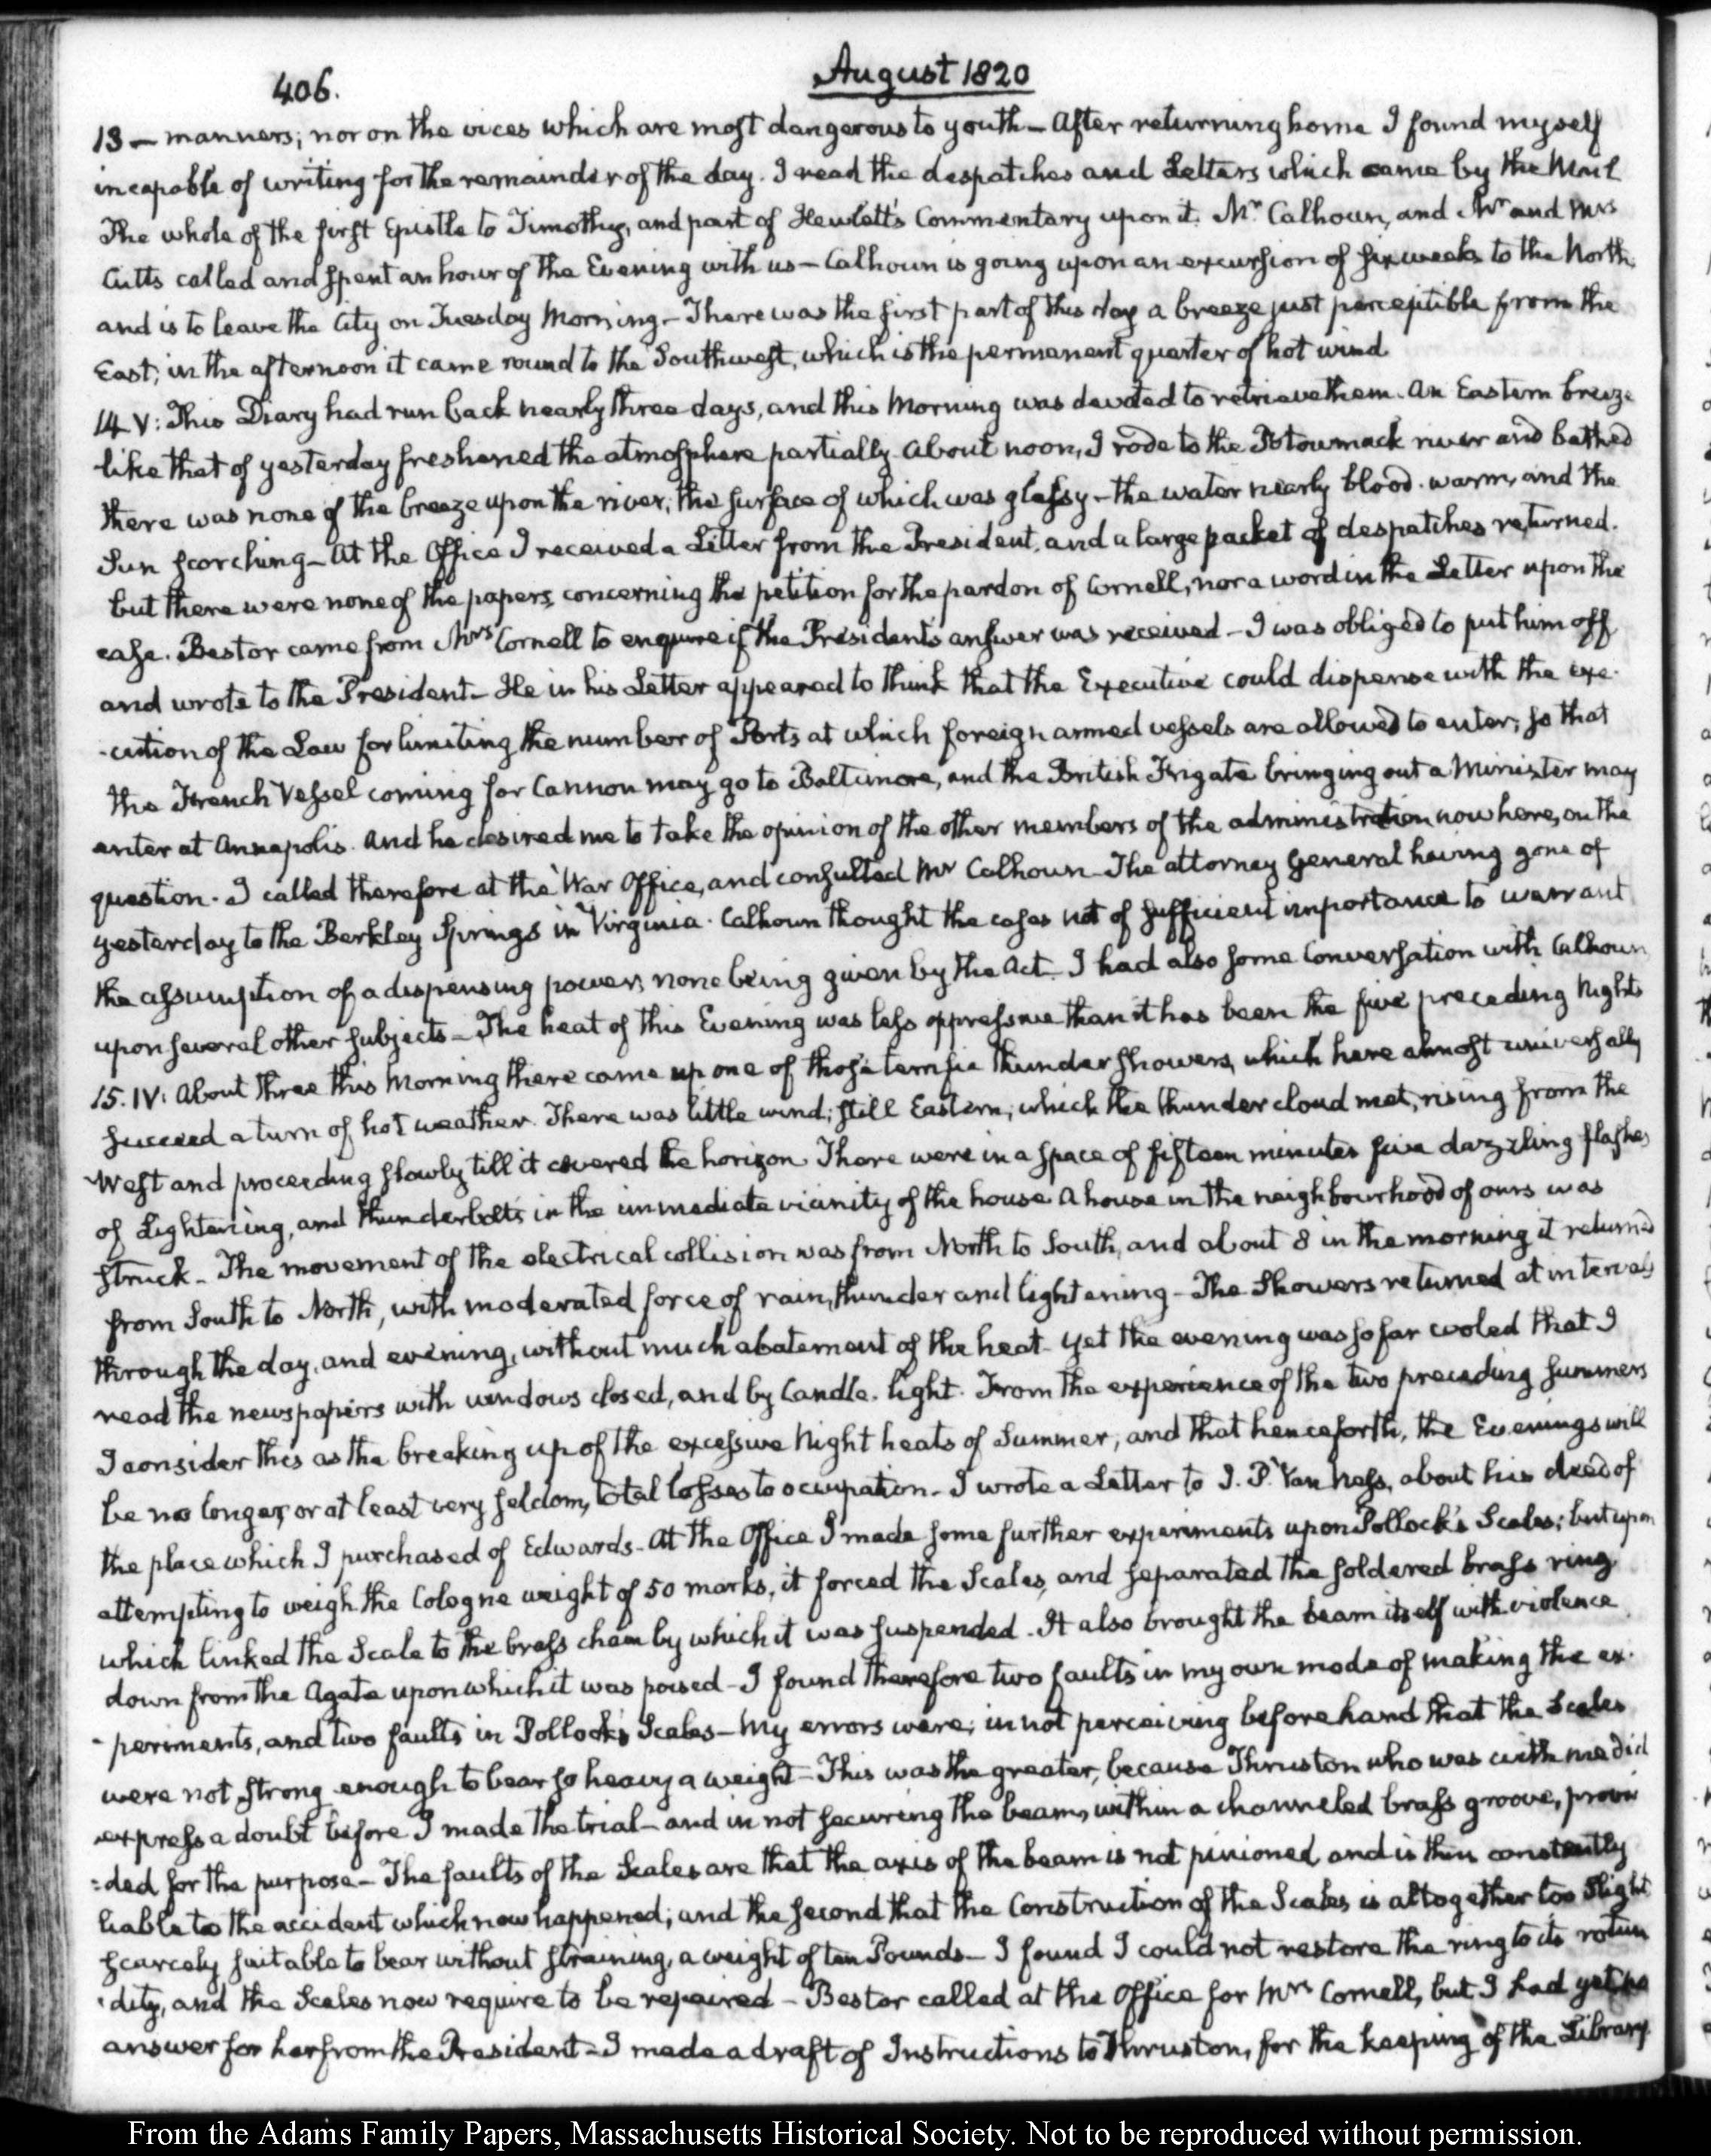 406.
August 1820
13 — manners; nor on the vices which are most dangerous to youth — After returning home I found myself
incapable of writing for the remainder of the day. I read the despatches and Letters which came by the Mail
The whole of the first Epistle to Timothy, and part of Hewlett's Commentary upon it. Mr. Calhoun, and Mr and Mrs
Cutts called and spent an hour of the Evening with us — Calhoun is going upon an excursion of six weeks to the North,
and is to leave the City on Tuesday Morning — There was the first part of this day a breeze just perceptible from the
East; in the afternoon it came round to the Southwest, which is the permanent quarter of hot wind
14. V: This Diary had run back nearly three days, and this Morning was devoted to retrieve them. An Eastern breeze
like that of yesterday freshened the atmosphere partially. About noon, I rode to the Potowmack river and bathed
there was none of the breeze upon the river; the surface of which was glassy — the water nearly blood-warm, and the
Sun scorching — At the Office I received a Letter from the President, and a large packet of despatches returned.
but there were none of the papers concerning the petition for the pardon of Cornell, nor a word in the Letter upon the
case. Bestor came from Mrs Cornell to enquire if the President's answer was received — I was obliged to put him off
and wrote to the President — He in his Letter appeared to think that the Executive could dispense with the exe-
-cution of the Law for limiting the number of Ports at which foreign armed vessels are allowed to enter; so that
the French Vessel coming for Cannon may go to Baltimore, and the British Frigate bringing out a Minister may
enter at Annapolis. And he desired me to take the opinion of the other members of the administration now here, on the
question. I called therefore at the War Office, and consulted Mr Calhoun — The Attorney General having gone of
yesterday to the Berkley Springs in Virginia. Calhoun thought the cases not of sufficient importance to warrant
the assumption of a dispensing power, none being given by the Act. I had also some Conversation with Calhoun
upon several other subjects — The heat of this Evening was less oppressive than it has been the five preceding Nights
15. IV: About three this Morning there came up one of those terrific thunder showers, which here almost universally
succeed a turn of hot weather. There was little wind; still Eastern; which the thunder cloud met, rising from the
West and proceeding slowly till it covered the horizon. There were in a space of fifteen minutes five dazzling flashes
of Lightening, and thunderbolts in the immediate vicinity of the house. A house in the neighbourhood of ours was
struck — The movement of the electrical collision was from North to South, and about 8 in the morning it returned
from South to North, with moderated force of rain, thunder and lightening — The Showers returned at intervals
through the day, and evening, without much abatement of the heat — yet the evening was so far cooled that I
read the newspapers with windows closed, and by Candle-light. From the experience of the two preceding summers
I consider this as the breaking up of the excessive Night heats of Summer; and that henceforth, the Evenings will
be no longer, or at least very seldom, total losses to occupation — I wrote a Letter to J. P. Van Ness, about his deed of
the place which I purchased of Edwards — At the Office I made some further experiments upon Pollock's Scales; but upon
attempting to weigh the Cologne weight of 50 marks, it forced the Scales, and separated the soldered brass ring
which linked the Scale to the brass chain by which it was suspended. It also brought the beam itself with violence
down from the Agate upon which it was poised — I found therefore two faults in my own mode of making the ex-
-periments, and two faults in Pollock's Scales — My errors were; in not perceiving beforehand that the Scales
were not strong enough to bear so heavy a weight — This was the greater, because Thruston who was with me did
express a doubt before I made the trial — and in not securing the beam, within a channeled brass groove, provi
=ded for the purpose — The faults of the Scales are that the axis of the beam is not pinioned and is thus constantly
liable to the accident which now happened; and the second that the Construction of the Scales is altogether too slight
scarcely suitable to bear without straining, a weight of ten Pounds — I found I could not restore the ring to its rotun
-dity, and the Scales now require to be repaired — Bestor called at the Office for Mrs Cornell, but I had yet no
answer for her from the President — I made a draft of Instructions to Thruston, for the keeping of the Library
From the Adams Family Papers, Massachusetts Historical Society. Not to be reproduced without permission.